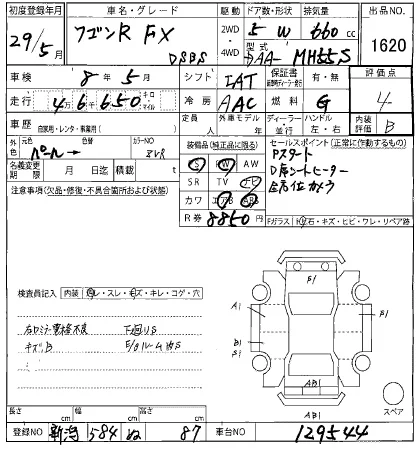 初度登録年月 車名・グレード 駆動 ドア数・形状 排気量 出品NO.
29/5月 ワゴンR FX DSBS 2WD・4WD 5 W 660cc 1620
型式 DAA- MH55S
車検 8年5月 シフト IAT 保証書 有・無 評価点
走行 4万6千650 キロ マイル 冷房 AAC 燃料 G 4
車歴 自家用・レンタ・事業用( ) 定員 人 外車モデル年 年 ディーラー・並行 ハンドル 左・右 内装評価 B
外色 元色 パール→ 色 カラーNO ZVR
名義変更期限 月 日迄 積載 t
装備品(純正品に限る)
PS PW AW
SR TV ナビ
カワ エアB ABS
R券 8850円
セールスポイント(正常に作動するもの)
Pスタート
D席シートヒーター
全方位カメラ
注意事項(欠品・修復・不具合箇所および状態)
Fガラス(飛石・キズ・ヒビ・ワレ・リペア跡)
検査員記入 内装(ヨゴレ・スレ・キズ・キレ・コゲ・穴)
右ロミラー電格不良 下廻りS
キズ、B E/gルーム内S
B1
A1
B1
S1
AB1
AB1
スペア
長さ cm 幅 cm 高さ cm
登録NO 新潟 584 ぬ 87 車台NO 129544